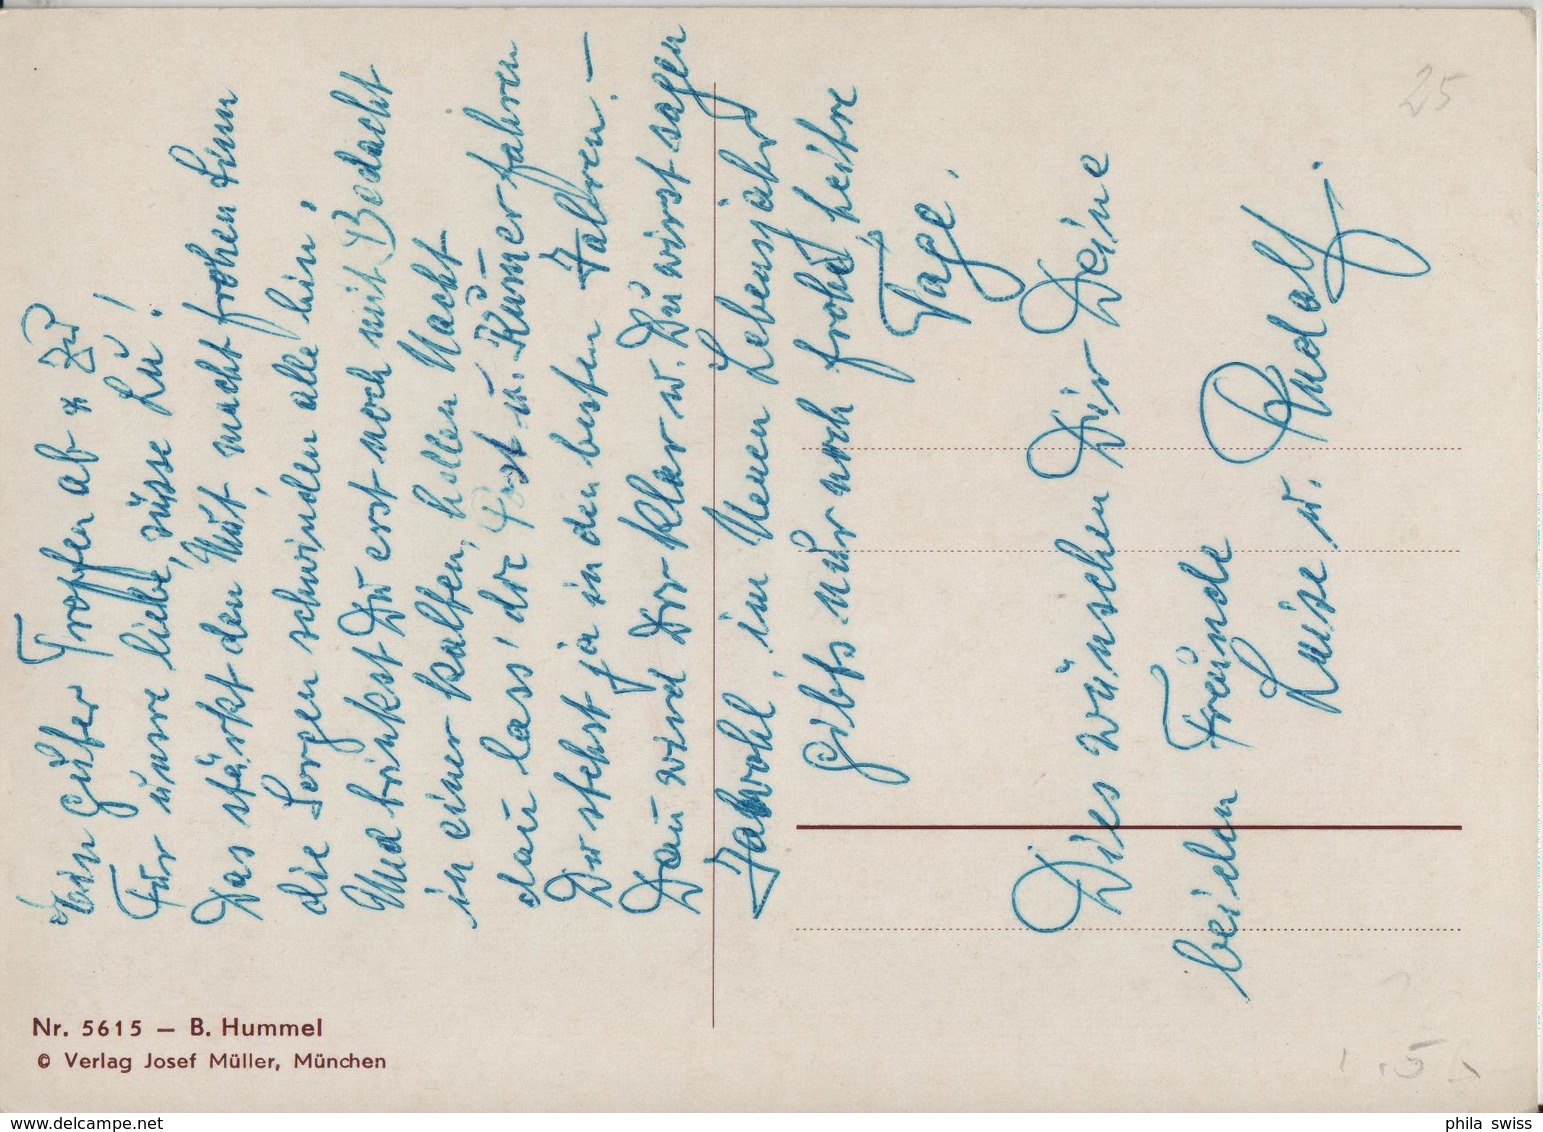 Ein guter Tropfen ab & zu
Für unsre liebe, süsse Lu!
Das stärkt den Mut, macht frohen Sinn
die Sorgen schwinden alle hin!
Und trinkst Du erst noch mit Bedacht
in einer kalten, hellen Nacht
dan lass' die Post u. Kumer fahren
Du stehst ja in den besten Jahren. –
Dan wird Dir klar u. Du wirst sagen
Jawohl, im Neuen Lebensjahr
gibts nur noch frohe, heitre
Tage.
Dies wünschen Dir Deine
beiden Freunde
Luise u. Rudolf.
25
Nr. 5615 — B. Hummel
© Verlag Josef Müller, München
phila swiss